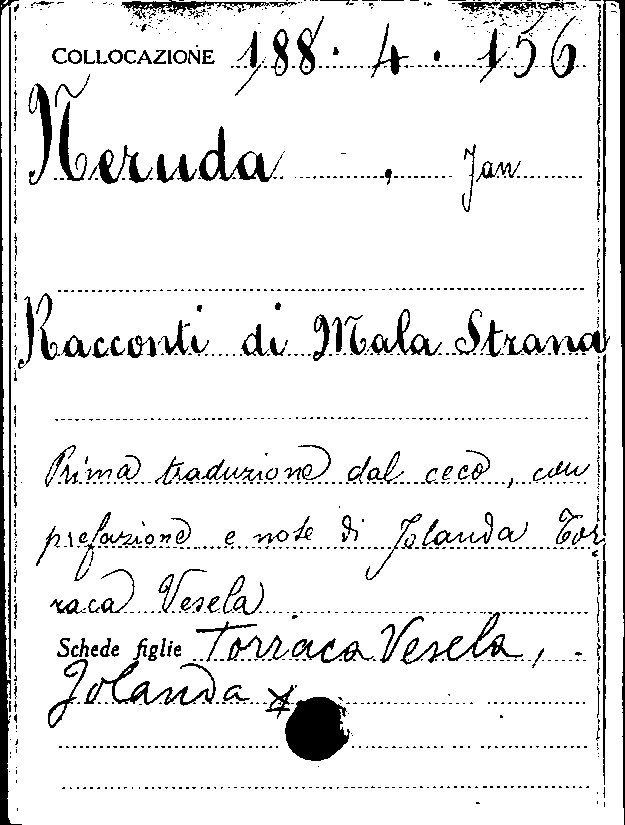 COLLOCAZIONE 188. 4. 156
Neruda, Jan
Racconti di Mala Strana
Prima traduzione dal ceco, con
prefazione e note di Jolanda Tor
raca Vesela
Schede figlie Torraca Vesela,
Jolanda *